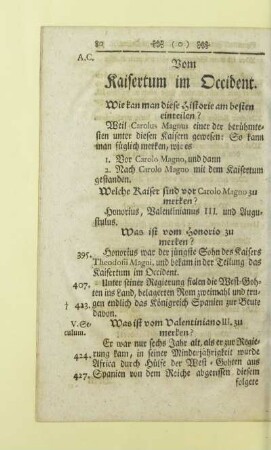 80 ❧ ( o ) ❧
A.C. Vom
Kaisertum im Occident.
Wie kan man diese Historie am besten
einteilen?
Weil Carolus Magnus einer der berühmte-
sten unter diesen Kaisern gewesen: So kan
man füglich merken, wie es
1. Vor Carolo Magno, und dann
2. Nach Carolo Magno mit dem Kaisertum
gestanden.
Welche Kaiser sind vor Carolo Magno zu
merken?
Honorius, Valentinianus III. und Augu-
stulus.
Was ist vom Honorio zu
merken?
395. Honorius war der jüngste Sohn des Kaisers
Theodosii Magni, und bekam in der Teilung das
Kaisertum im Occident.
407. Unter seiner Regierung fielen die West-Goh-
ten ins Land, belagerten Rom zweimahl und tru-
† 423. gen endlich das Königreich Spanien zur Beute
davon.
V. Se- Was ist vom Valentiniano III. zu
culum. merken?
Er war nur sechs Jahr alt, als er zur Regie-
424. rung kam, in seiner Minderjährigkeit wurde
Africa durch Hülfe der West-Gohten aus
427. Spanien von dem Reiche abgerissen diesem
folgete